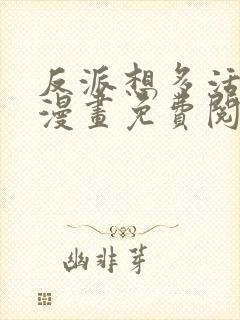 反派想多活
漫畫免費閱
幽非芽